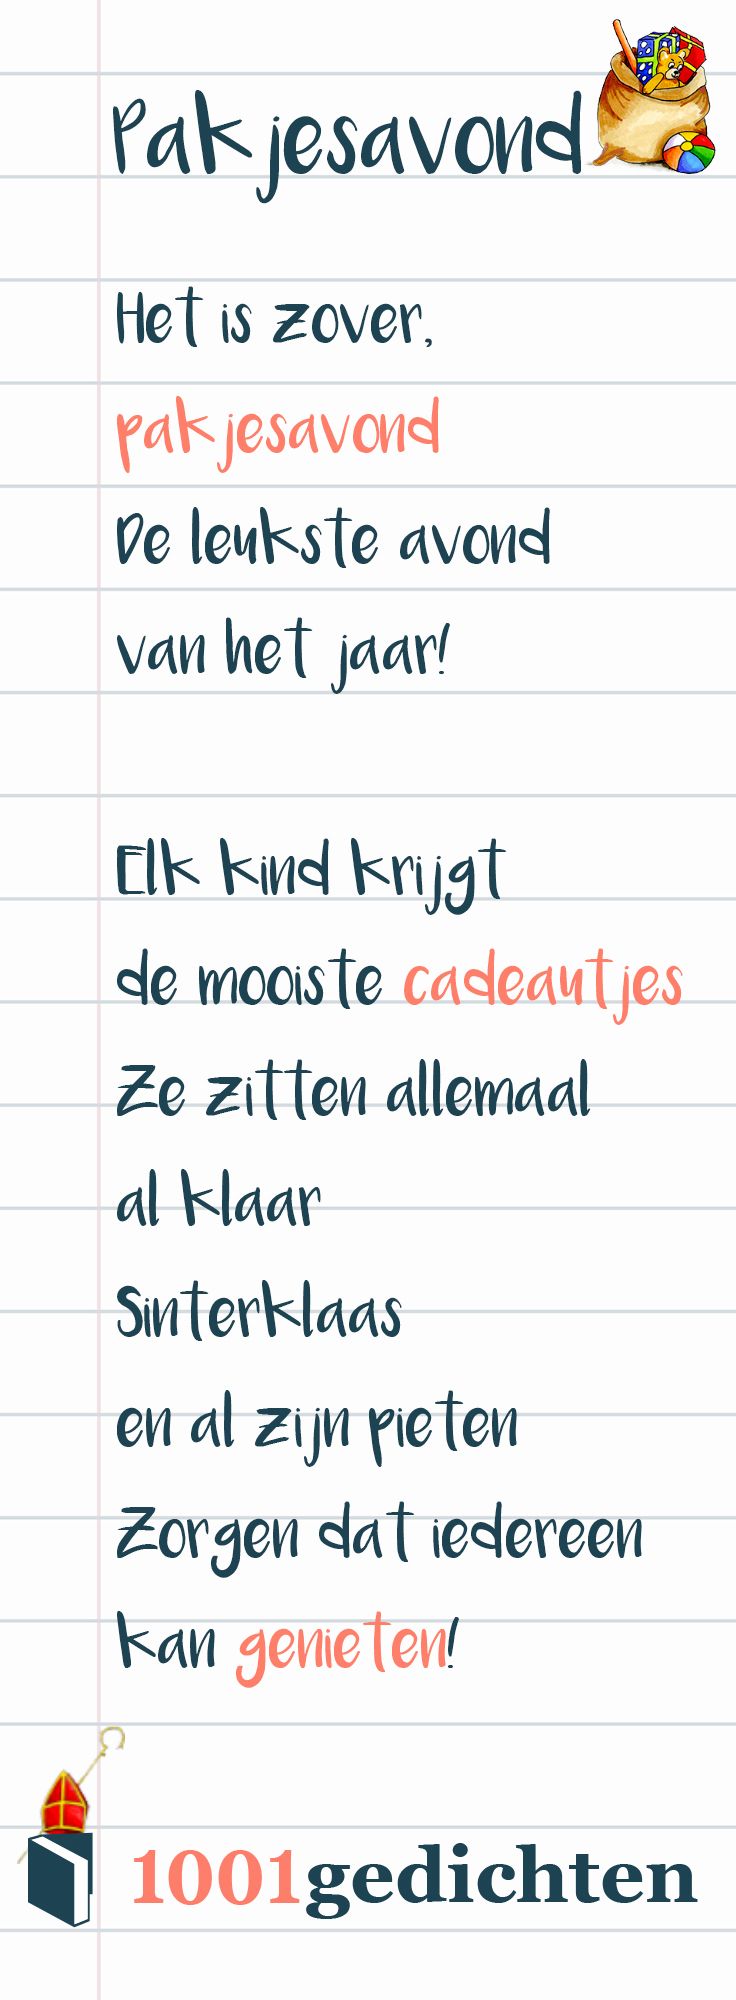 Pakjesavond
Het is zover,
pakjesavond
De leukste avond
van het jaar!
Elk kind krijgt
de mooiste cadeautjes
Ze zitten allemaal
al klaar
Sinterklaas
en al zijn pieten
Zorgen dat iedereen
kan genieten!
1001gedichten